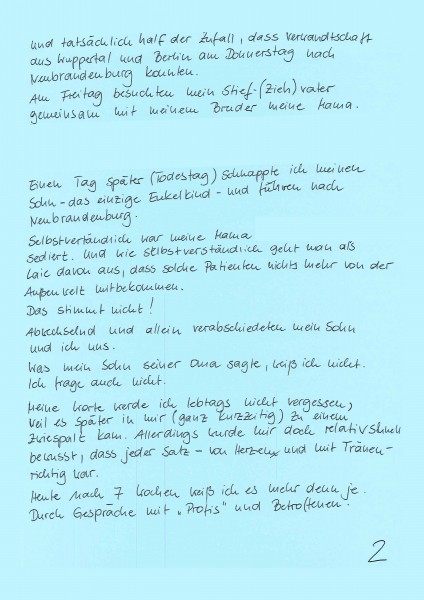 und tatsächlich half der Zufall, dass Verwandtschaft
aus Wuppertal und Berlin am Donnerstag nach
Neubrandenburg konnten.
Am Freitag besuchten mein Stief-(Zieh)vater
gemeinsam mit meinem Bruder meine Mama.
Einen Tag später (Todestag) schnappte ich meinen
Sohn - das einzige Enkelkind - und fuhren nach
Neubrandenburg.
Selbstvertändlich war meine Mama
sediert. Und wie selbstverständlich geht man als
Laie davon aus, dass solche Patienten nichts mehr von der
Außenwelt mitbekommen.
Das stimmt nicht!
Abwechselnd und allein verabschiedeten mein Sohn
und ich uns.
Was mein Sohn seiner Oma sagte, weiß ich nicht.
Ich frage auch nicht.
Meine Worte werde ich lebtags nicht vergessen,
weil es später in mir (ganz kurzzeitig) zu einem
Zwiespalt kam. Allerdings wurde mir doch relativ schnell
bewusst, dass jeder Satz - von Herzen und mit Tränen -
richtig war.
Heute nach 7 Wochen weiß ich es mehr denn je.
Durch Gespräche mit „Profis" und Betroffenen.
2